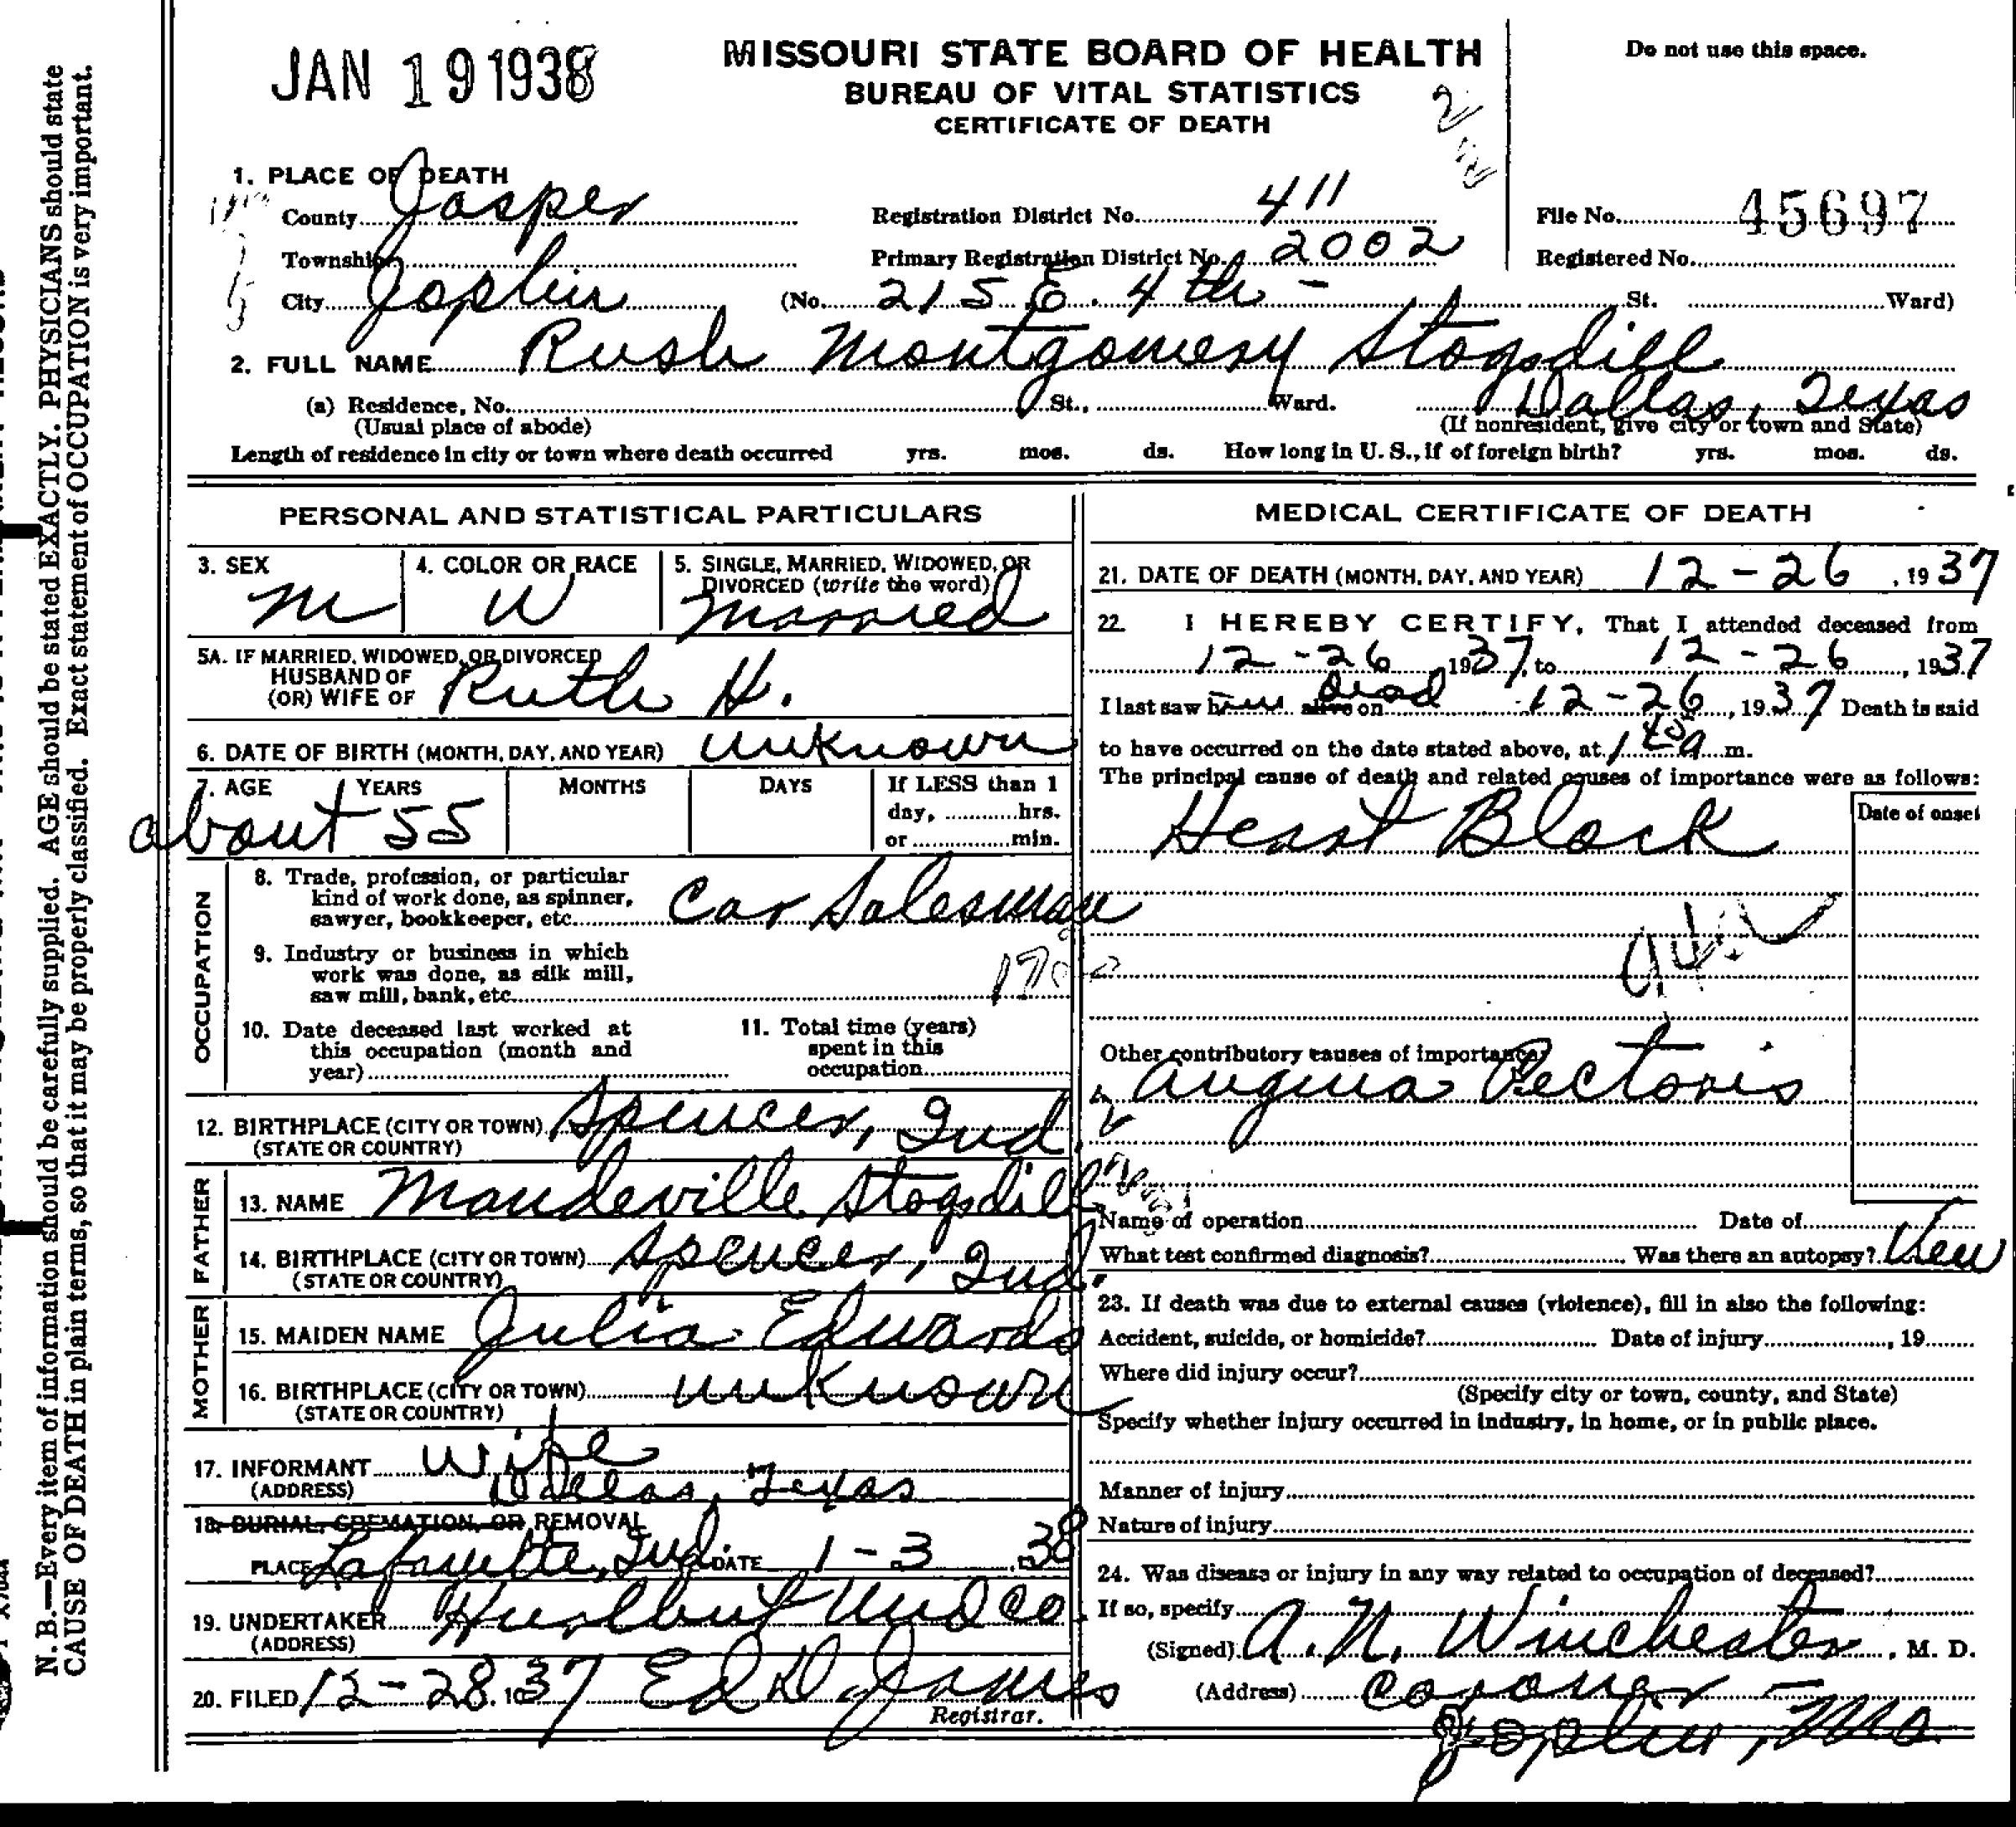 JAN 19 1938
MISSOURI STATE BOARD OF HEALTH
BUREAU OF VITAL STATISTICS
CERTIFICATE OF DEATH
Do not use this space.
1. PLACE OF DEATH
County Jasper
Registration District No. 411
File No. 45697
Township
Primary Registration District No. 2002
Registered No.
City Joplin (No. 215 E. 4th - St. Ward)
2. FULL NAME Rush Montgomery Stogsdill
(a) Residence, No. St., Ward. Dallas, Texas
(Usual place of abode) (If nonresident, give city or town and State)
Length of residence in city or town where death occurred yrs. mos. ds. How long in U. S., if of foreign birth? yrs. mos. ds.
PERSONAL AND STATISTICAL PARTICULARS
3. SEX M
4. COLOR OR RACE W
5. SINGLE, MARRIED, WIDOWED, OR DIVORCED (write the word) Married
5A. IF MARRIED, WIDOWED, OR DIVORCED
HUSBAND OF
(OR) WIFE OF Ruth H.
6. DATE OF BIRTH (MONTH, DAY, AND YEAR) unknown
7. AGE YEARS MONTHS DAYS If LESS than 1
day, hrs.
or min.
about 55
OCCUPATION
8. Trade, profession, or particular
kind of work done, as spinner,
sawyer, bookkeeper, etc. Car Salesman
9. Industry or business in which
work was done, as silk mill,
saw mill, bank, etc.
10. Date deceased last worked at
this occupation (month and
year)
11. Total time (years)
spent in this
occupation
12. BIRTHPLACE (CITY OR TOWN) Spencer, Ind.
(STATE OR COUNTRY)
FATHER
13. NAME Mandeville Stogsdill
14. BIRTHPLACE (CITY OR TOWN) Spencer, Ind.
(STATE OR COUNTRY)
MOTHER
15. MAIDEN NAME Julia Edwards
16. BIRTHPLACE (CITY OR TOWN) unknown
(STATE OR COUNTRY)
17. INFORMANT Wife
(ADDRESS) Dallas, Texas
18. BURIAL, CREMATION, OR REMOVAL
PLACE Lafayette, Ind DATE 1-3, 38
19. UNDERTAKER Hurlbut Und Co.
(ADDRESS)
20. FILED 12-28, 1937 Ed D James
Registrar.
MEDICAL CERTIFICATE OF DEATH
21. DATE OF DEATH (MONTH, DAY, AND YEAR) 12-26, 1937
22. I HEREBY CERTIFY, That I attended deceased from
12-26, 1937, to 12-26, 1937
I last saw him alive on dead 12-26, 1937 Death is said
to have occurred on the date stated above, at 1 40 a m.
The principal cause of death and related causes of importance were as follows:
Date of onset
Heart Block
Other contributory causes of importance:
Angina Pectoris
Name of operation Date of
What test confirmed diagnosis? Was there an autopsy? View
23. If death was due to external causes (violence), fill in also the following:
Accident, suicide, or homicide? Date of injury , 19
Where did injury occur?
(Specify city or town, county, and State)
Specify whether injury occurred in industry, in home, or in public place.
Manner of injury
Nature of injury
24. Was disease or injury in any way related to occupation of deceased?
If so, specify
(Signed) A. N. Winchester, M. D.
(Address) Coroner -
Joplin, Mo.
N. B.—Every item of information should be carefully supplied. AGE should be stated EXACTLY. PHYSICIANS should state
CAUSE OF DEATH in plain terms, so that it may be properly classified. Exact statement of OCCUPATION is very important.